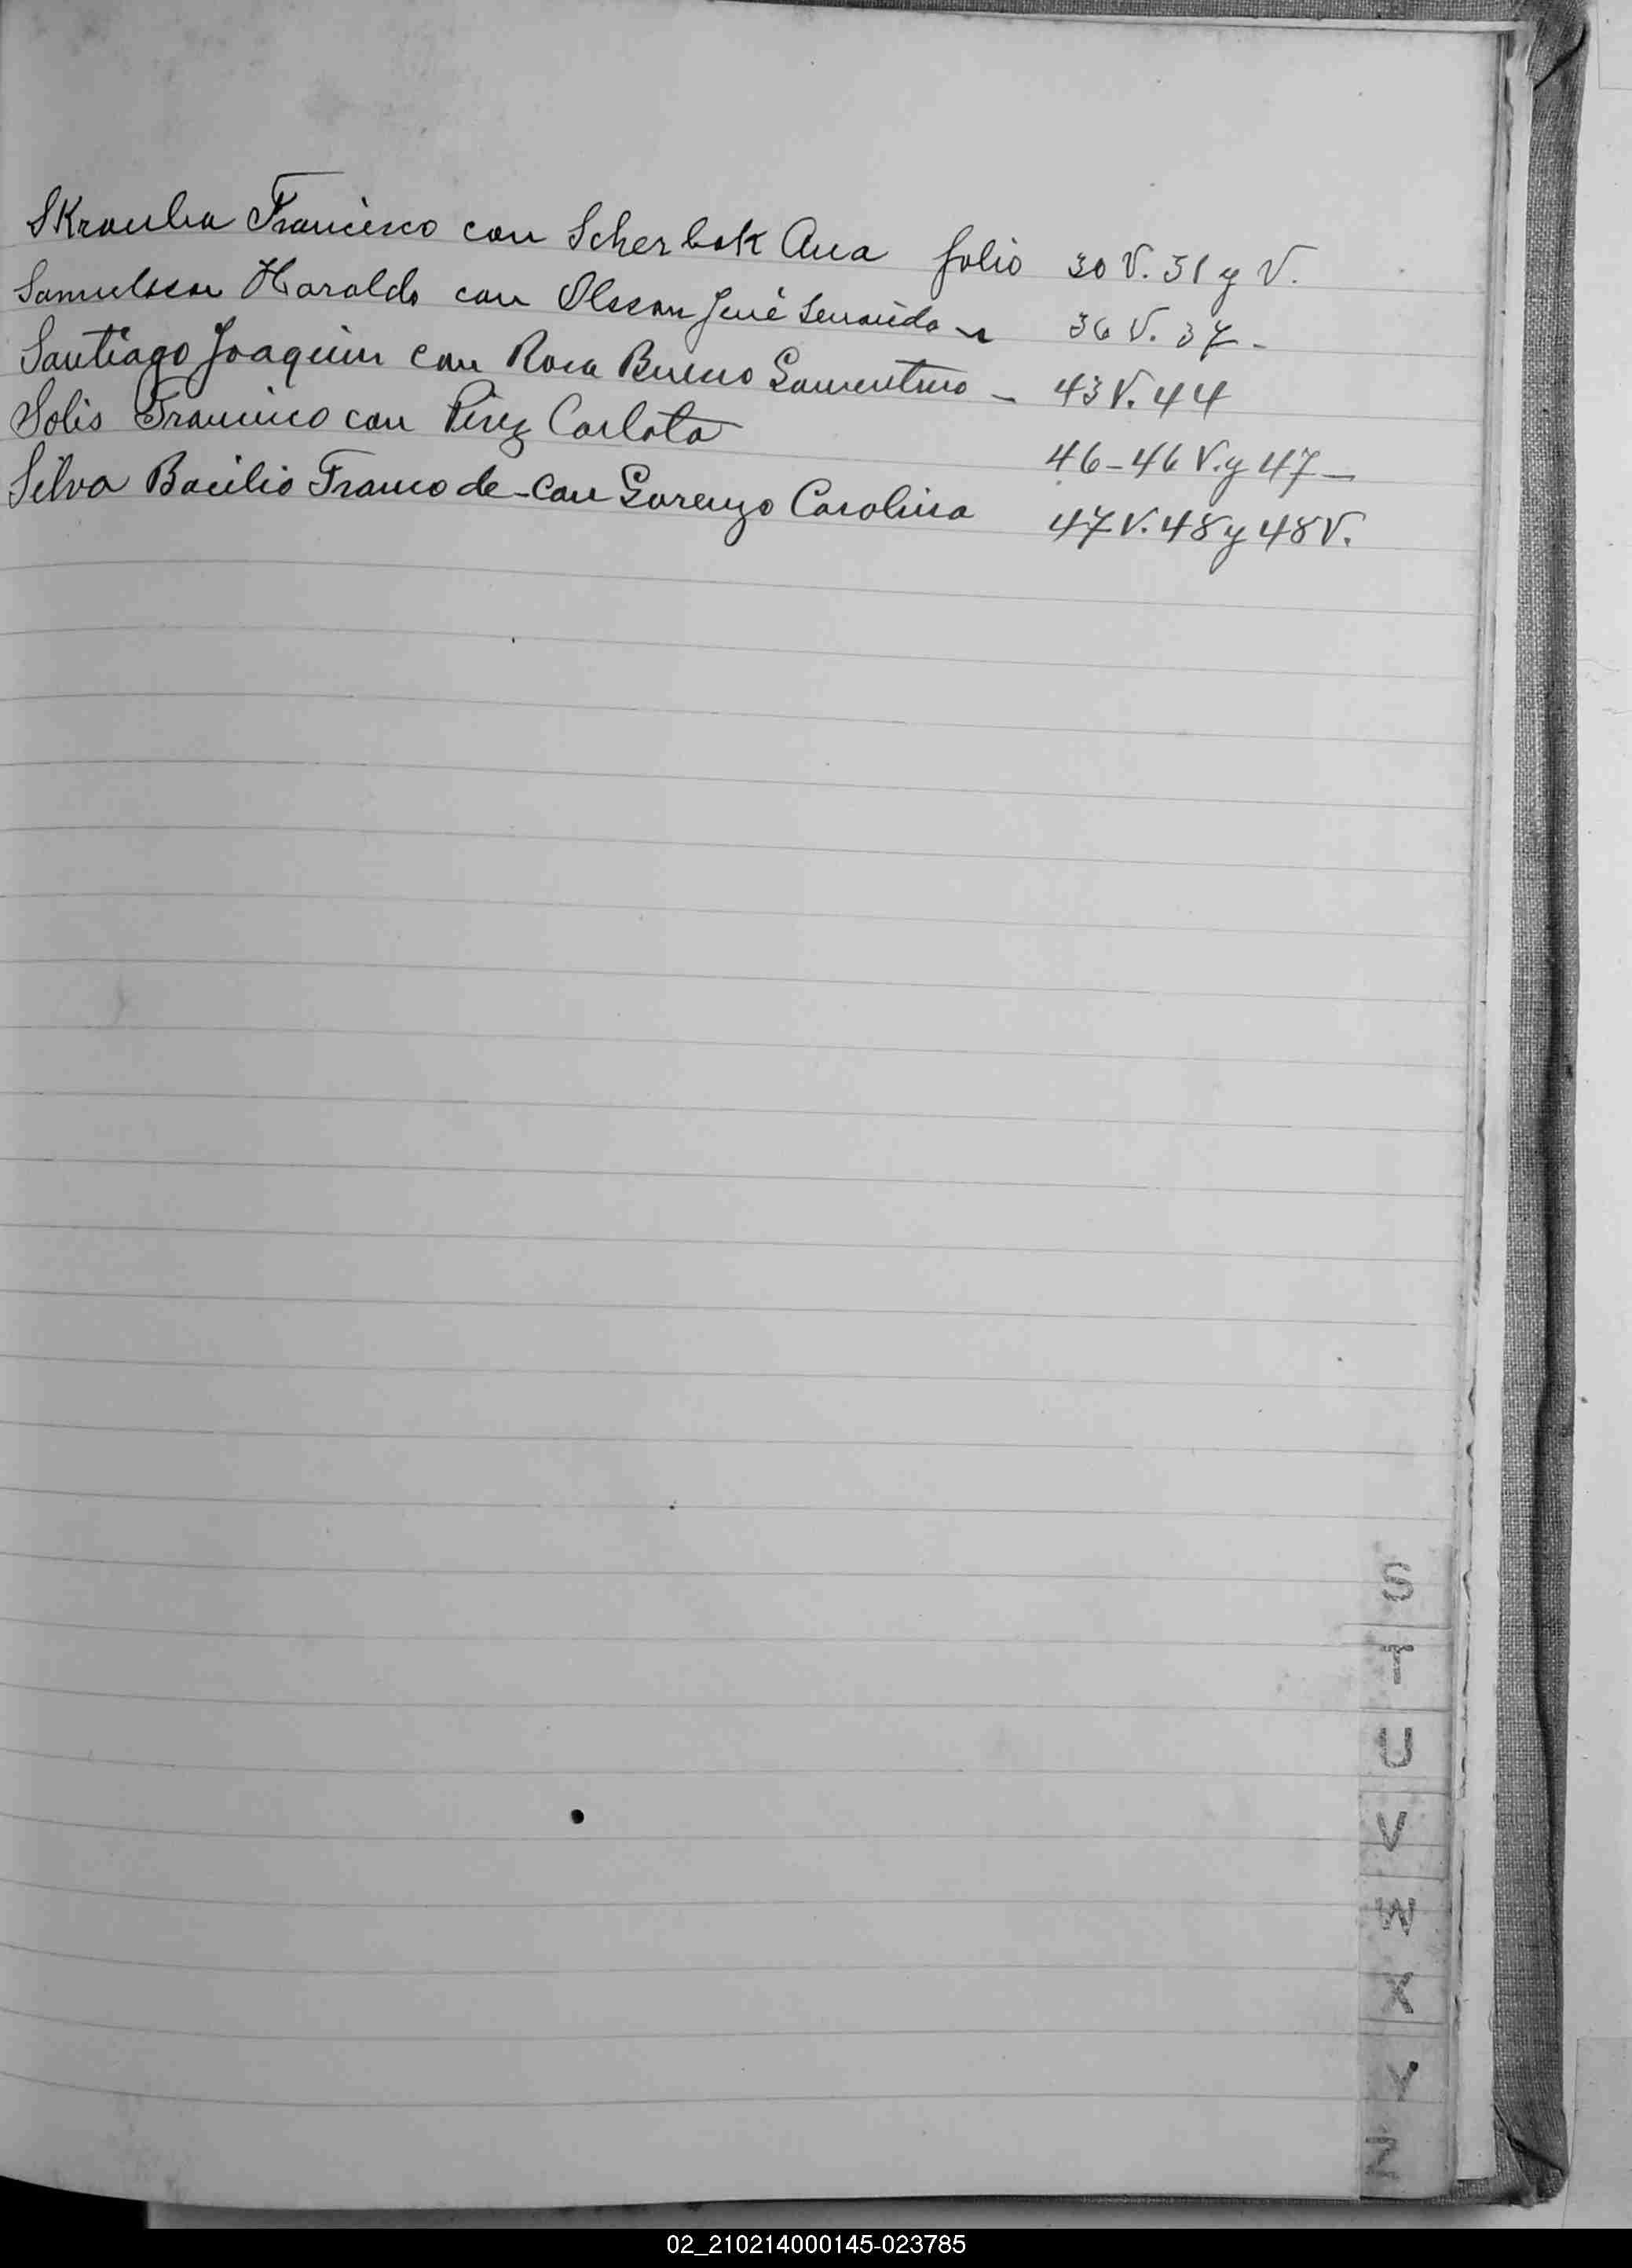 Skrauba Francisco con Scherbak Ana folio 30 V. 31 y V.
Samuelsson Haroldo con Olsson 36 V. 37-
Santiago Joaquin con Rosa Bueno Laurentino - 43 V. 44
Solis Francisco con Pérez Carlota 46-46 V. y 47-
Silva Basilio Franco de-con Lorenzo Carolina 47 V. 48 y 48 V.
S
T
U
V
W
X
Y
Z
02_210214000145-023785